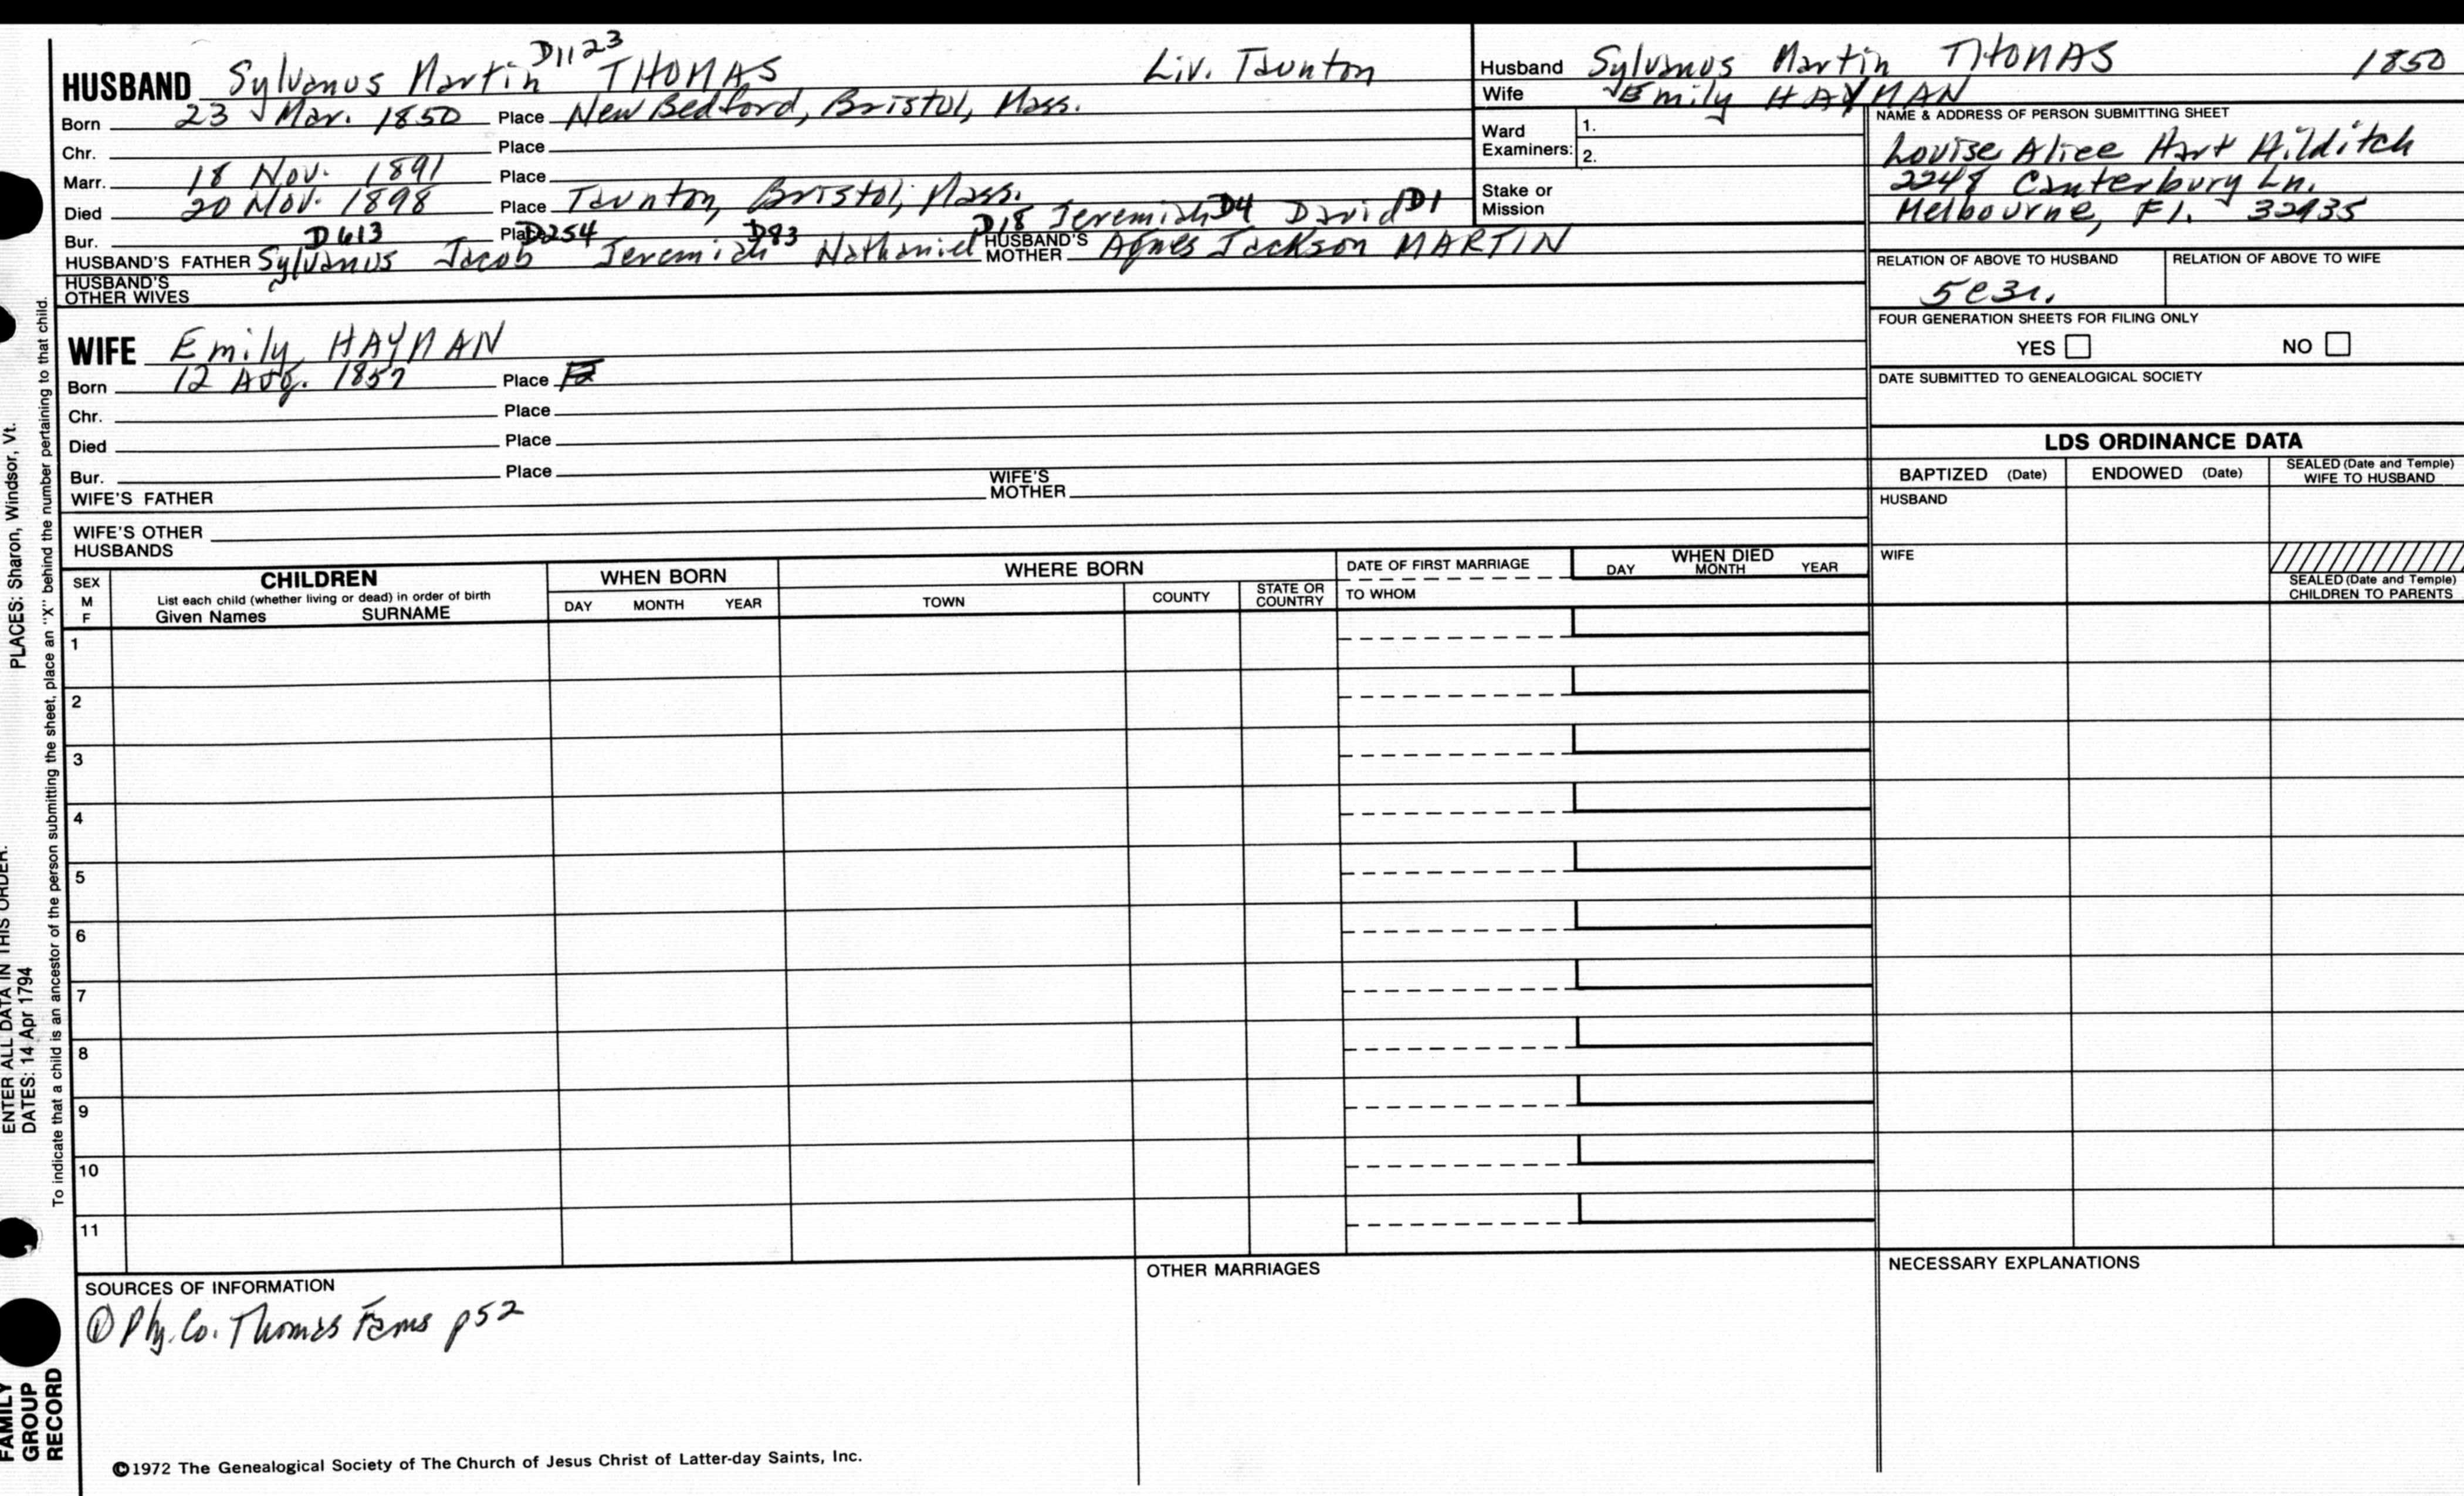 D1123
HUSBAND Sylvanus Martin THOMAS Liv. Taunton
Born 23 Mar. 1850 Place New Bedford, Bristol, Mass.
Chr. Place
Marr. 18 Nov. 1891 Place
Died 20 Nov. 1898 Place Taunton, Bristol, Mass.
D18 Jeremiah D4 David D1
Bur. D613 Place D254 D83
HUSBAND'S FATHER Sylvanus Jacob Jeremiah Nathaniel HUSBAND'S MOTHER Agnes Jackson MARTIN
HUSBAND'S OTHER WIVES
Husband Sylvanus Martin THOMAS 1850
Wife Emily HAYMAN
Ward Examiners: 1.
2.
Stake or Mission
NAME & ADDRESS OF PERSON SUBMITTING SHEET
Louise Alice Hart Hilditch
2248 Canterbury Ln.
Melbourne, Fl. 32935
RELATION OF ABOVE TO HUSBAND RELATION OF ABOVE TO WIFE
5c3r.
FOUR GENERATION SHEETS FOR FILING ONLY
YES NO
DATE SUBMITTED TO GENEALOGICAL SOCIETY
WIFE Emily HAYMAN
Born 12 Aug. 1857 Place
Chr. Place
Died Place
Bur. Place
WIFE'S FATHER WIFE'S MOTHER
WIFE'S OTHER HUSBANDS
LDS ORDINANCE DATA
BAPTIZED (Date) ENDOWED (Date) SEALED (Date and Temple) WIFE TO HUSBAND
HUSBAND
WIFE
SEALED (Date and Temple) CHILDREN TO PARENTS
SEX M F
CHILDREN
List each child (whether living or dead) in order of birth
Given Names SURNAME
WHEN BORN
DAY MONTH YEAR
WHERE BORN
TOWN COUNTY STATE OR COUNTRY
DATE OF FIRST MARRIAGE
TO WHOM
WHEN DIED
DAY MONTH YEAR
1
2
3
4
5
6
7
8
9
10
11
SOURCES OF INFORMATION
① Ply. Co. Thomas Fams p52
OTHER MARRIAGES
NECESSARY EXPLANATIONS
©1972 The Genealogical Society of The Church of Jesus Christ of Latter-day Saints, Inc.
PLACES: Sharon, Windsor, Vt.
To indicate that a child is an ancestor of the person submitting the sheet, place an "X" behind the number pertaining to that child.
ENTER ALL DATA IN THIS ORDER:
DATES: 14 Apr 1794
FAMILY
GROUP
RECORD